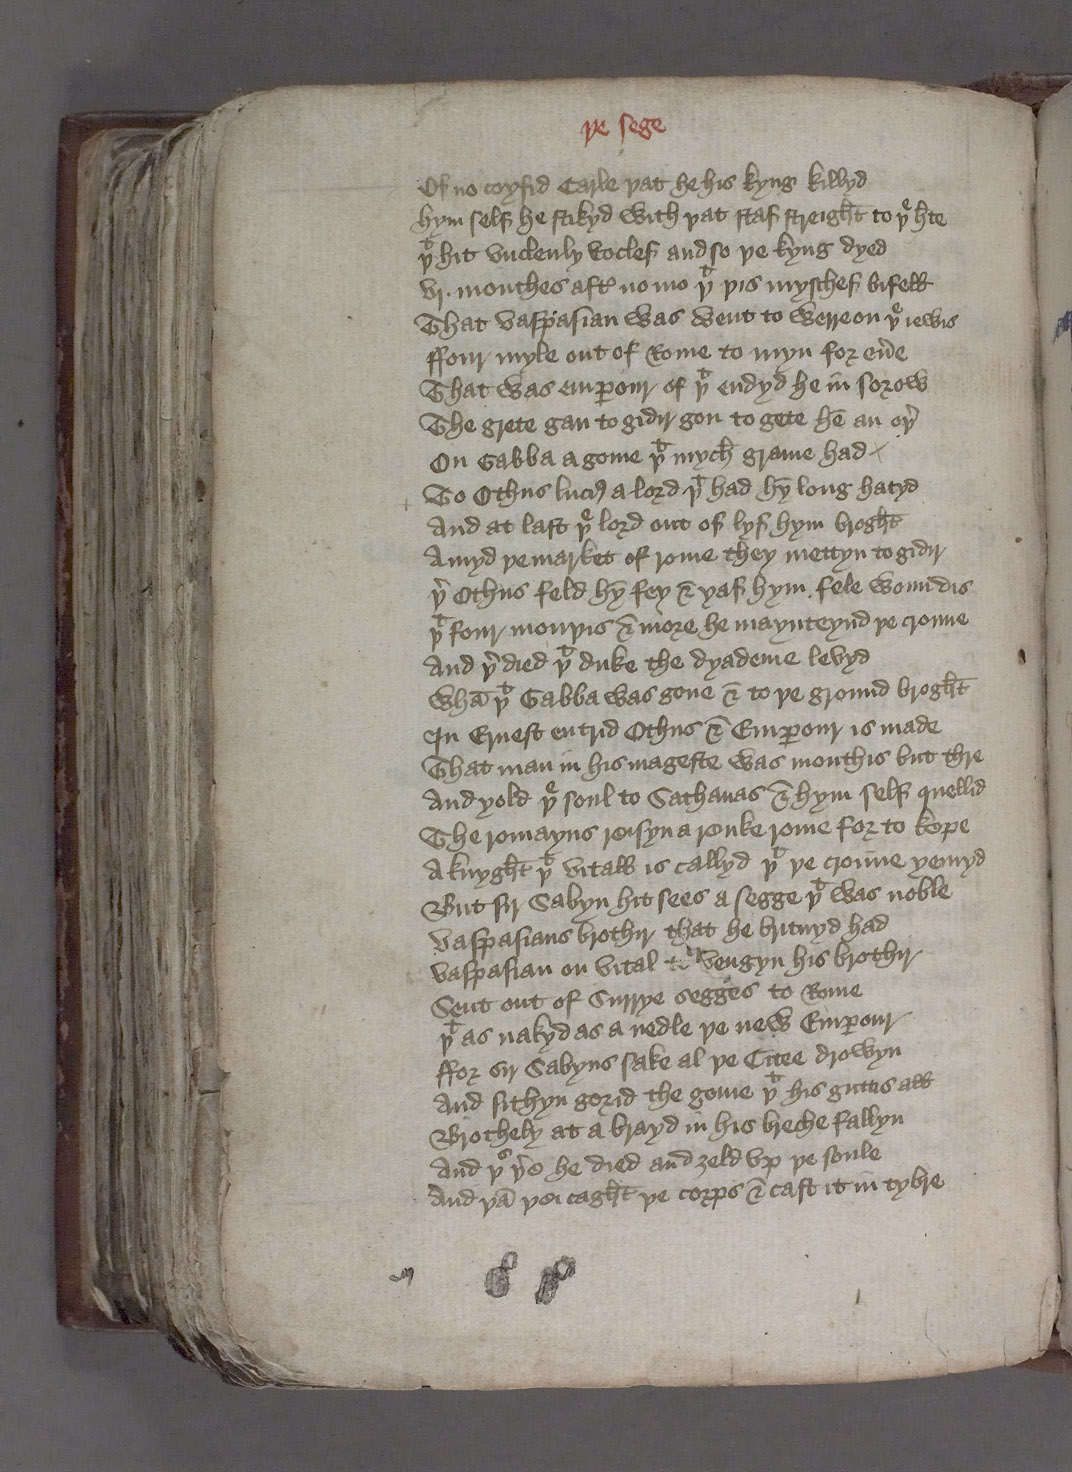 þe sege
Of no coysid Carle þat he his kyng killyd
hym self he stikyd with þat staf streight to þe hte
þt hit vnclenly toclef and so þe kyng dyed
vj. monthes aft no mo þt þis myschef bifell
That vaspasian was went to werre on þe iewis
ffour myle out of Rome to myn for eue
That was empour of þt endyd he in sorow
The grete gan to gidir gon to gete hē an oþ
On Gabba a gome þt mych grame had
To Othus luciꝰ a lord þt had hȳ long hatyd
And at last þe lord out of lyf hym broght
Amyd þe market of rome they mettyn to gidir
þ Othus feld hȳ fey & yaf hym fele woundis
þt four monþis & more he maynteynd þe croune
And þ died þt duke the dyademe levyd
Whā þt Gabba was gone & to þe ground broght
In Ernest entrid Othus & Empour is made
That man in his mageste was monthis but thre
And yold þe soul to Sathanas & hym self quellid
The romayns reisyn a renke rome for to kepe
A knyght þt vitall is callyd þt þe croune yemyd
But sir Sabyn hit sees a segge þt was noble
Vaspasians brothir that he britnyd had
vaspasian on vital to vengyn his brothir
Sent out of Surrye segges to Rome
þt as nakyd as a nedle þe new Empour
ffor sir Sabyns sake al þe Citee drowyn
And sithyn gorid the gome þt his guttis all
Brothely at a brayd in his breche fallyn
And þus þo he died and zeld vp þe soule
And þā þei caght þe corps & cast it in tybre